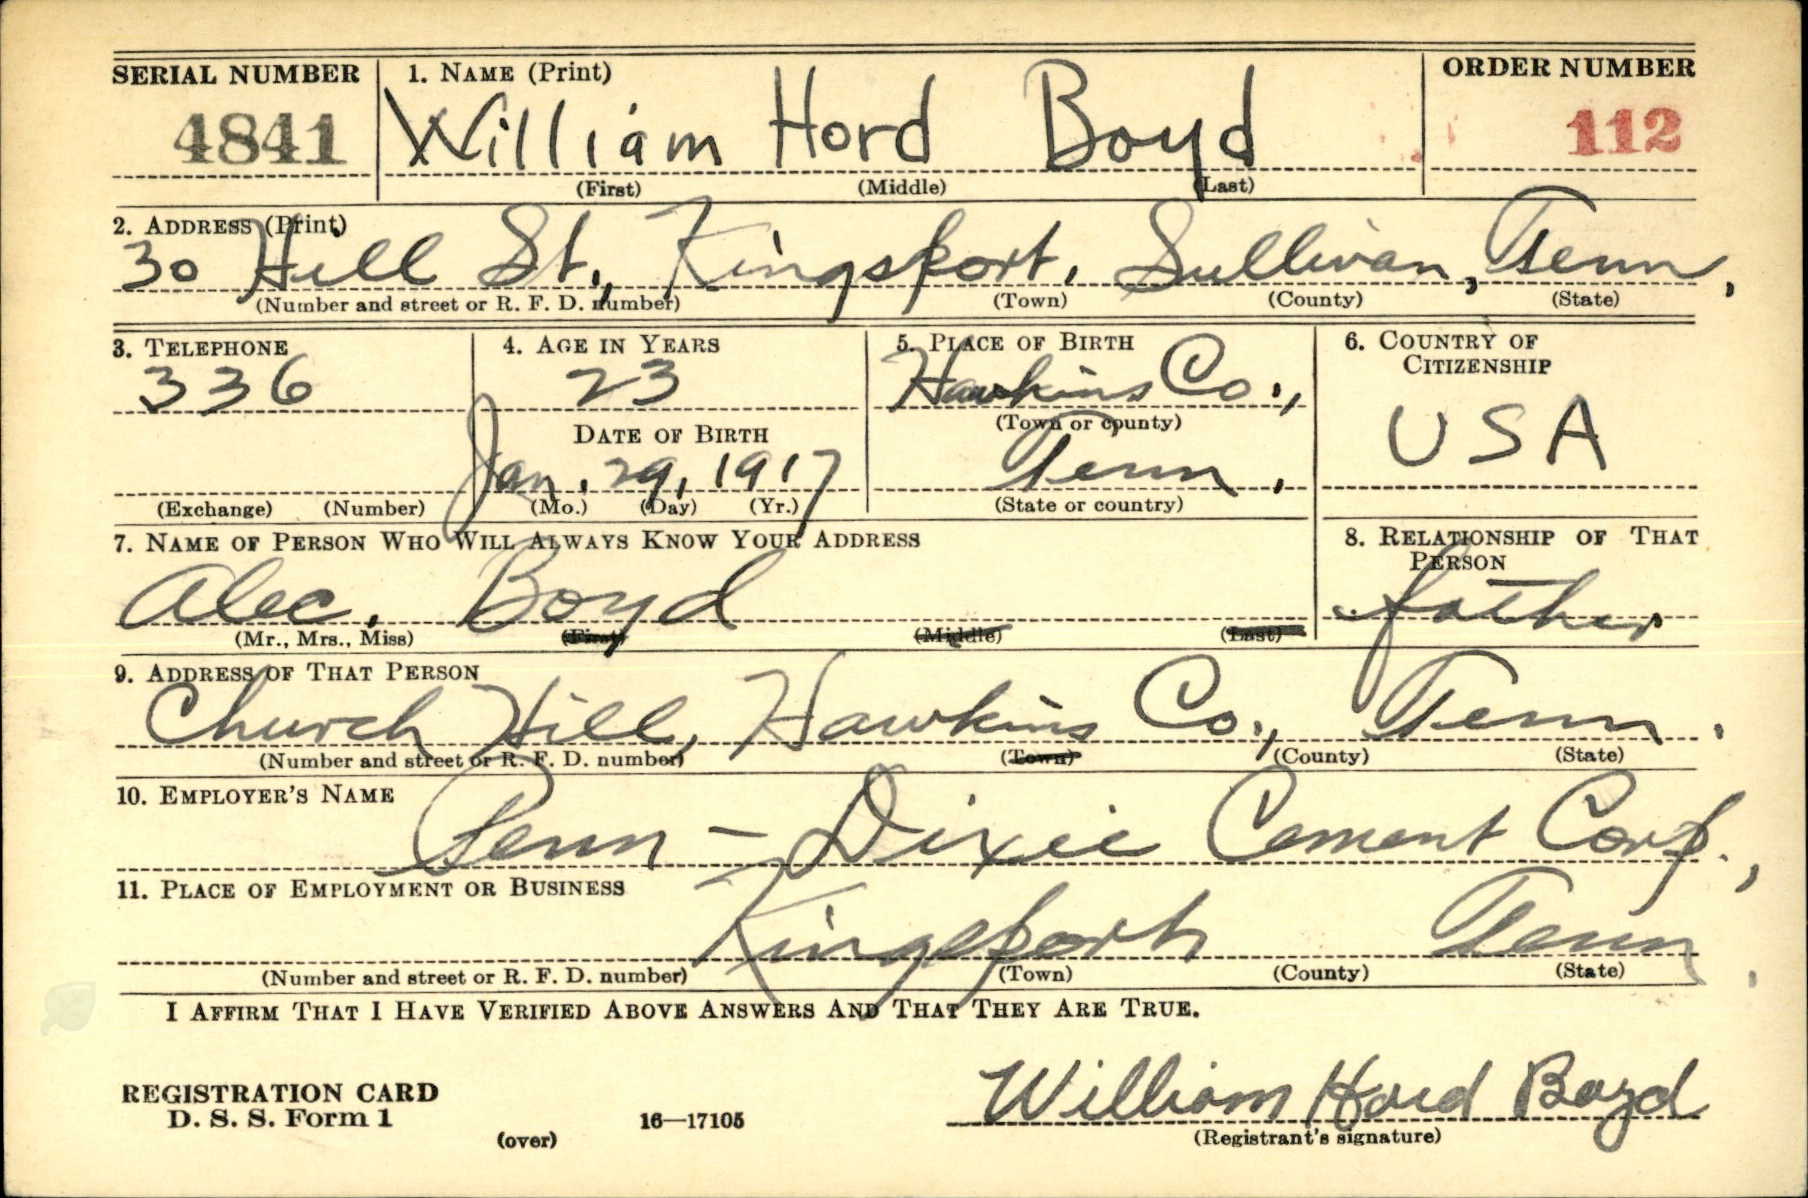 SERIAL NUMBER 1. NAME (Print) ORDER NUMBER
4841 William Hord Boyd 112
(First) (Middle) (Last)
2. ADDRESS (Print)
30 Hill St., Kingsport, Sullivan, Tenn,
(Number and street or R. F. D. number) (Town) (County) (State)
3. TELEPHONE 4. AGE IN YEARS 5. PLACE OF BIRTH 6. COUNTRY OF CITIZENSHIP
336 23 Hawkins Co., USA
DATE OF BIRTH (Town or county)
Jan. 29, 1917 Tenn.
(Exchange) (Number) (Mo.) (Day) (Yr.) (State or country)
7. NAME OF PERSON WHO WILL ALWAYS KNOW YOUR ADDRESS 8. RELATIONSHIP OF THAT PERSON
Alec. Boyd father
(Mr., Mrs., Miss) (First) (Middle) (Last)
9. ADDRESS OF THAT PERSON
Church Hill, Hawkins Co., Tenn.
(Number and street or R. F. D. number) (Town) (County) (State)
10. EMPLOYER'S NAME
Penn - Dixie Cement Corp.,
11. PLACE OF EMPLOYMENT OR BUSINESS
Kingsport Tenn.
(Number and street or R. F. D. number) (Town) (County) (State)
I AFFIRM THAT I HAVE VERIFIED ABOVE ANSWERS AND THAT THEY ARE TRUE.
REGISTRATION CARD
D. S. S. Form 1 16—17105 William Hord Boyd
(over) (Registrant's signature)